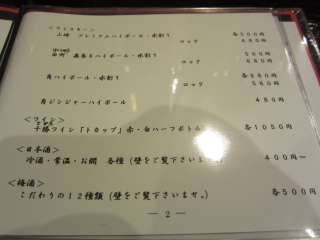 <ウイスキー>
山崎 プレミアムハイボール・水割り 各500円
ロック 680円
ハイボール・水割り 各500円
ロック 680円
角ハイボール・水割り 各380円
ロック 560円
角ジンジャーハイボール 480円
<ワイン>
十勝ワイン「トカップ」赤・白ハーフボトル 各1050円
<日本酒>
冷酒・常温・お燗 各種(壁をご覧下さいませ) 400円～
<梅酒>
こだわりの12種類(壁をご覧下さいませ。) 各500円
— 2 —